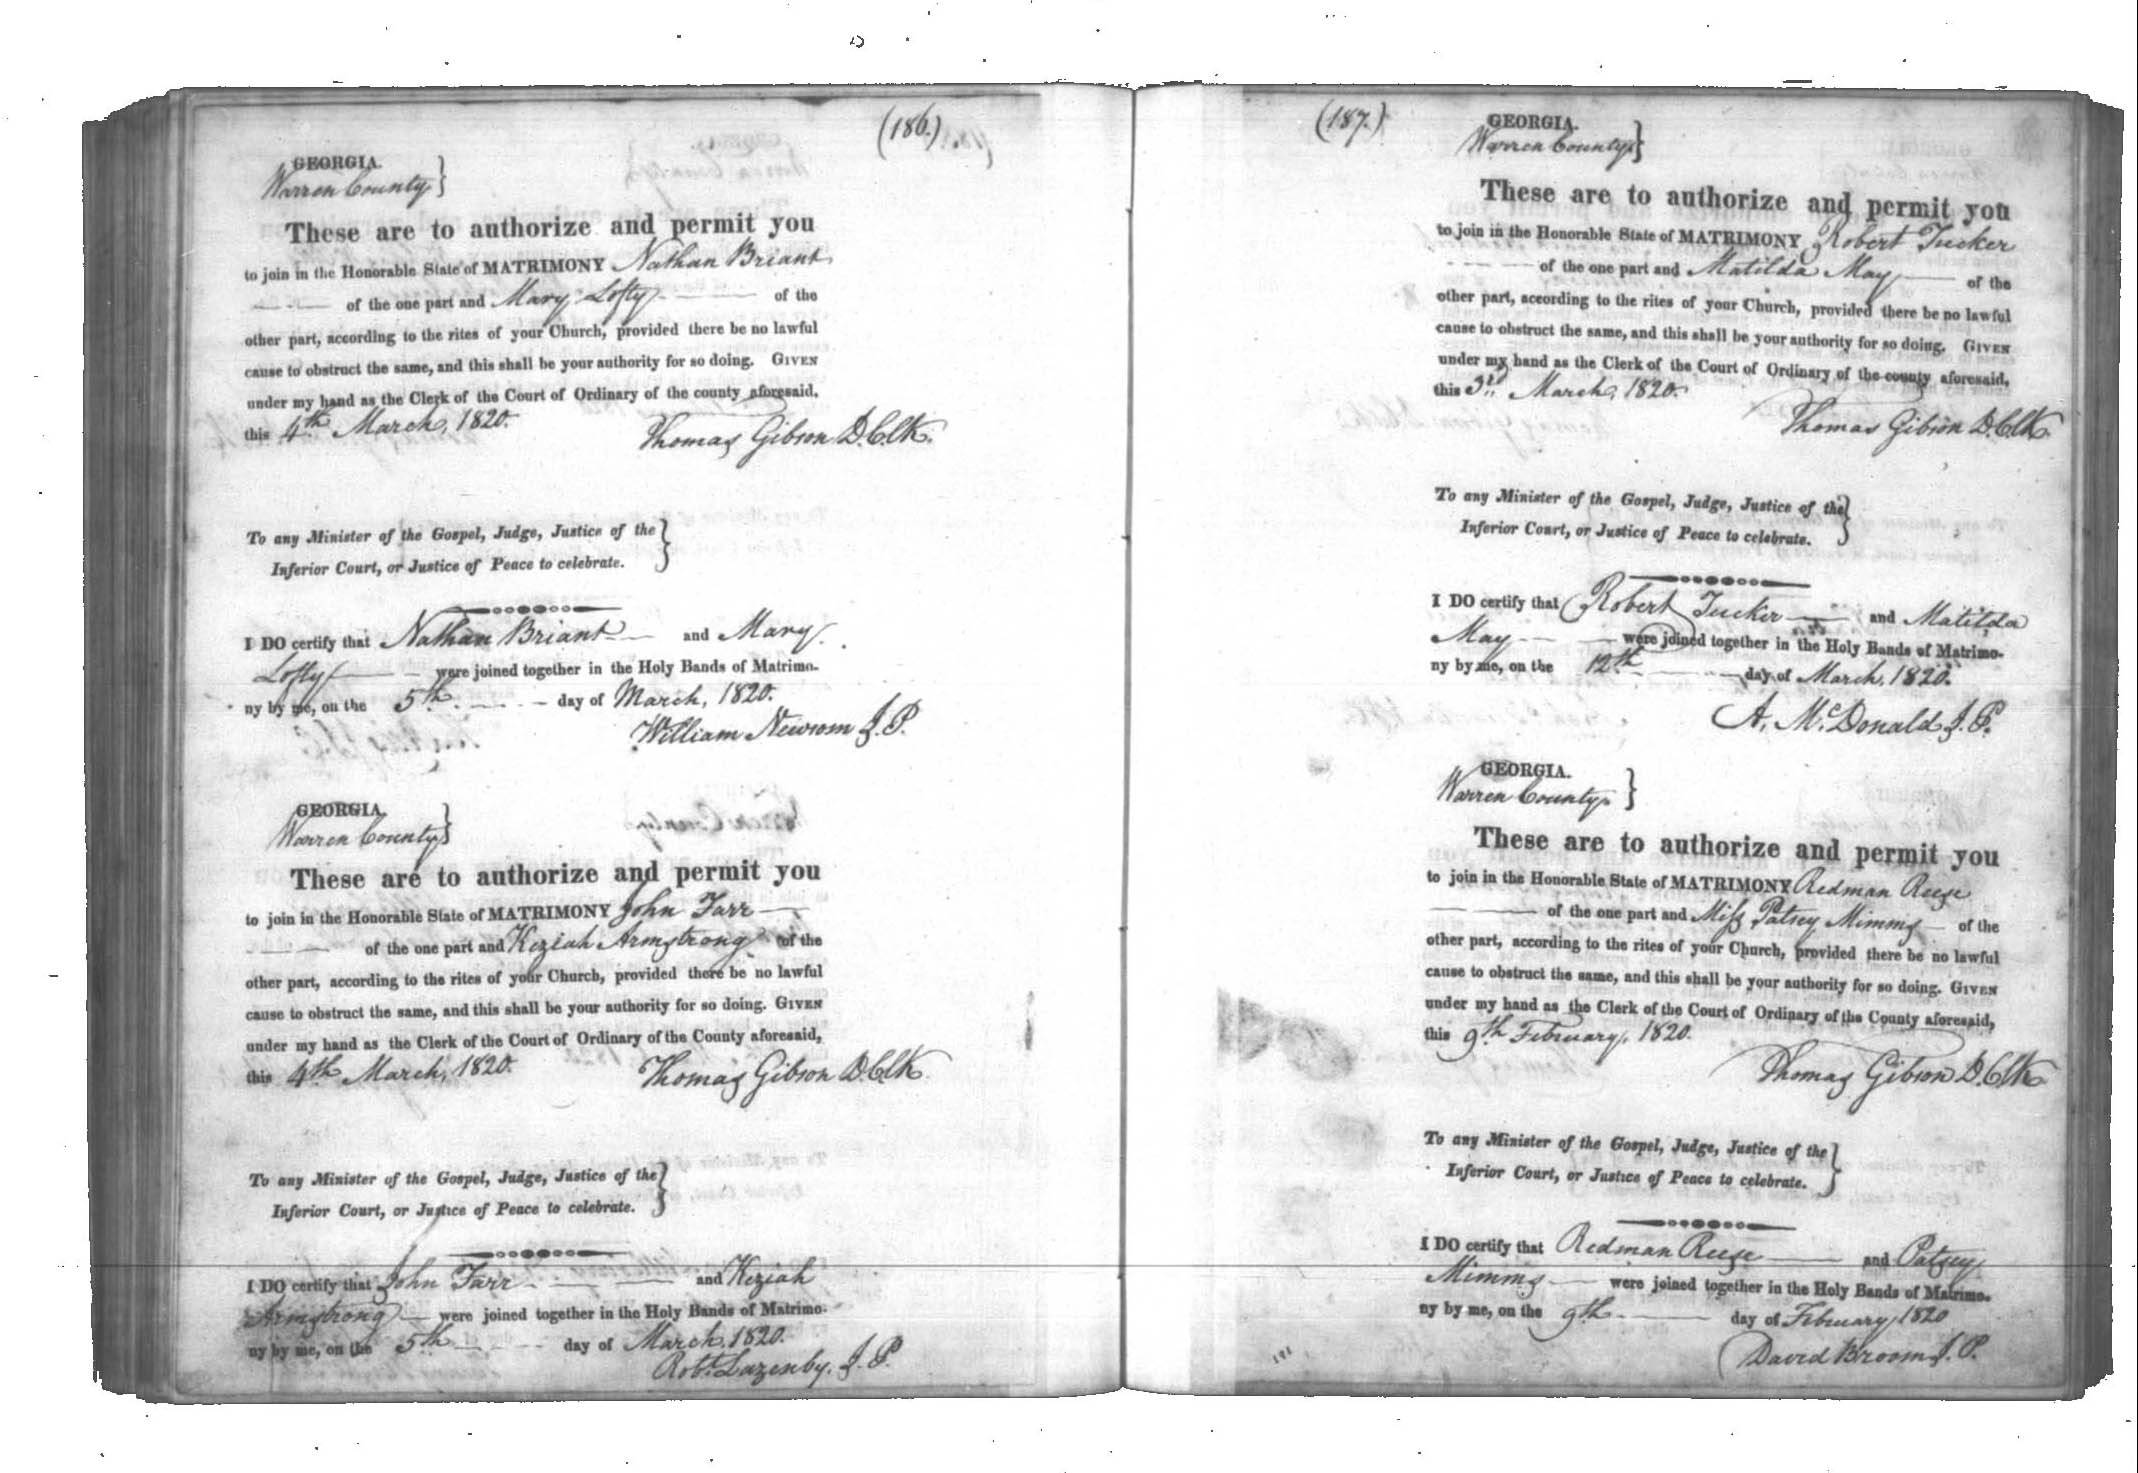 (186.)
GEORGIA.
Warren County }
These are to authorize and permit you
to join in the Honorable State of MATRIMONY Nathan Briant
of the one part and Mary Lofty of the
other part, according to the rites of your Church, provided there be no lawful
cause to obstruct the same, and this shall be your authority for so doing. GIVEN
under my hand as the Clerk of the Court of Ordinary of the county aforesaid,
this 4th March, 1820.
Thomas Gibson D. Clk.
To any Minister of the Gospel, Judge, Justice of the }
Inferior Court, or Justice of Peace to celebrate.
I DO certify that Nathan Briant and Mary
Lofty were joined together in the Holy Bands of Matrimo-
ny by me, on the 5th day of March, 1820.
William Newsom J. P.
GEORGIA.
Warren County }
These are to authorize and permit you
to join in the Honorable State of MATRIMONY John Farr
of the one part and Keziah Armstrong of the
other part, according to the rites of your Church, provided there be no lawful
cause to obstruct the same, and this shall be your authority for so doing. GIVEN
under my hand as the Clerk of the Court of Ordinary of the County aforesaid,
this 4th March, 1820.
Thomas Gibson D. Clk
To any Minister of the Gospel, Judge, Justice of the }
Inferior Court, or Justice of Peace to celebrate.
I DO certify that John Farr and Keziah
Armstrong were joined together in the Holy Bands of Matrimo-
ny by me, on the 5th day of March, 1820.
Robt. Lazenby, J. P.
(187.)
GEORGIA.
Warren County }
These are to authorize and permit you
to join in the Honorable State of MATRIMONY Robert Tucker
of the one part and Matilda May of the
other part, according to the rites of your Church, provided there be no lawful
cause to obstruct the same, and this shall be your authority for so doing. GIVEN
under my hand as the Clerk of the Court of Ordinary of the county aforesaid,
this 3rd March, 1820.
Thomas Gibson D. Clk.
To any Minister of the Gospel, Judge, Justice of the }
Inferior Court, or Justice of Peace to celebrate.
I DO certify that Robert Tucker and Matilda
May were joined together in the Holy Bands of Matrimo-
ny by me, on the 12th day of March, 1820.
A. McDonald J. P.
GEORGIA.
Warren County }
These are to authorize and permit you
to join in the Honorable State of MATRIMONY Redman Reese
of the one part and Miss Patsey Mimms of the
other part, according to the rites of your Church, provided there be no lawful
cause to obstruct the same, and this shall be your authority for so doing. GIVEN
under my hand as the Clerk of the Court of Ordinary of the County aforesaid,
this 9th February, 1820.
Thomas Gibson D. Clk
To any Minister of the Gospel, Judge, Justice of the }
Inferior Court, or Justice of Peace to celebrate.
I DO certify that Redman Reese and Patsey
Mimms were joined together in the Holy Bands of Matrimo-
ny by me, on the 9th day of February, 1820
David Broom J. P.